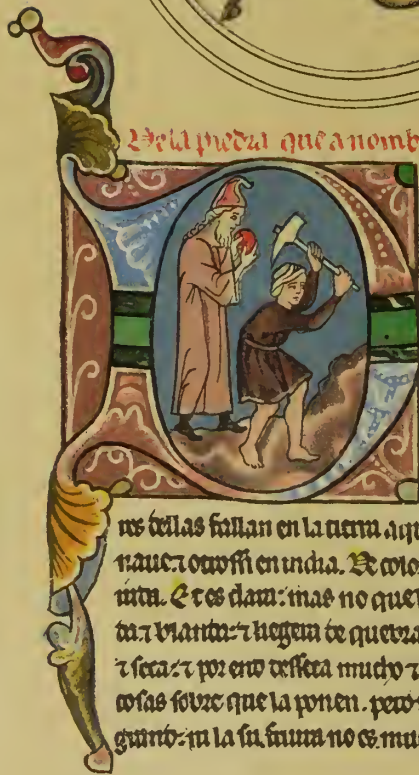 De la piedra que a nomb
nos dellas fallan en la tierra aq
naue ⁊ otrossi en india. De colo
Et es clara: mas no que
da ⁊ blanda: ⁊ ligera de quebra
⁊ seca: ⁊ por end desseca mucho ⁊
cosas sobre que la ponen. pero
ni la su fritura no es mu